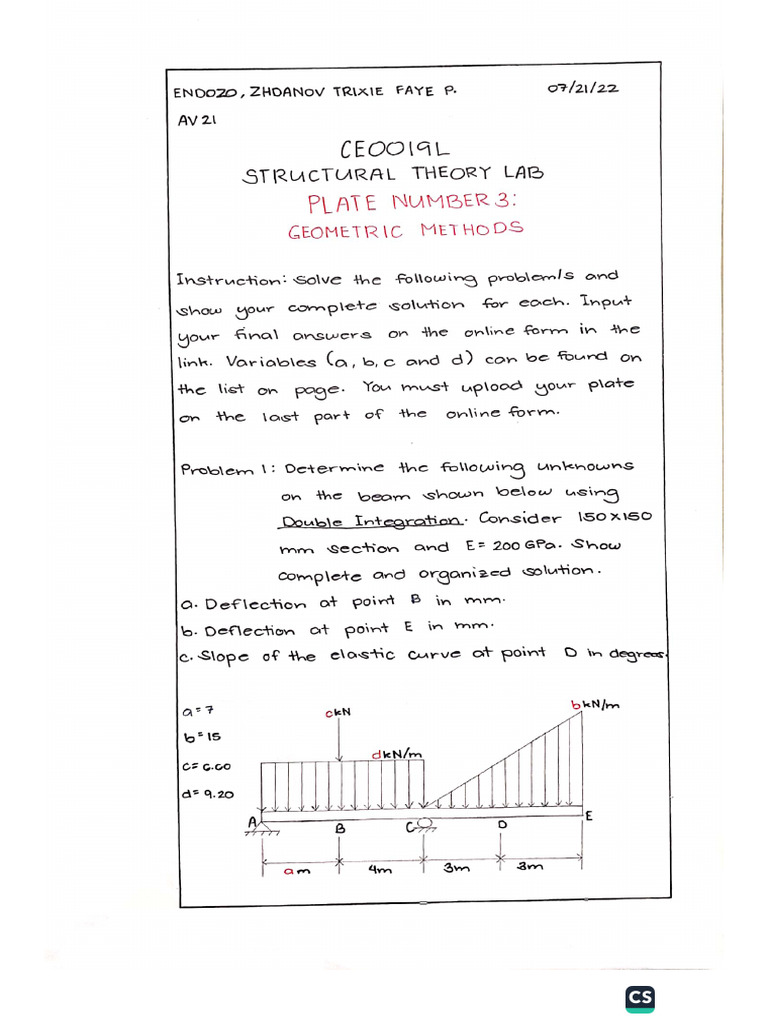 ENDOZO, ZHDANOV TRIXIE FAYE P. 07/21/22
AV 21
CE0019L
STRUCTURAL THEORY LAB
PLATE NUMBER 3:
GEOMETRIC METHODS
Instruction: Solve the following problem/s and
show your complete solution for each. Input
your final answers on the online form in the
link. Variables (a, b, c and d) can be found on
the list on page. You must upload your plate
on the last part of the online form.
Problem 1: Determine the following unknowns
on the beam shown below using
Double Integration. Consider 150x150
mm section and E= 200 GPa. Show
complete and organized solution.
a. Deflection at point B in mm.
b. Deflection at point E in mm.
c. Slope of the elastic curve at point D in degrees.
a = 7
b = 15
c = 6.60
d = 9.20
ckN
dkN/m
bkN/m
A B C D E
am 4m 3m 3m
CS